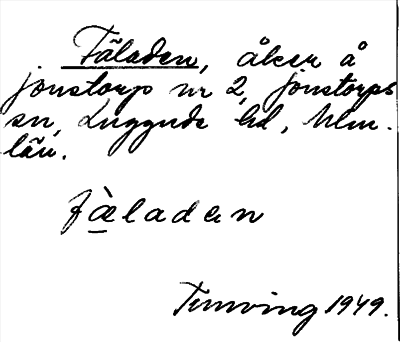 Fäladen, åker å
Jonstorp nr 2, Jonstorps
sn, Luggude hd, Mlm.
län.
fàladen
Tunving 1949.